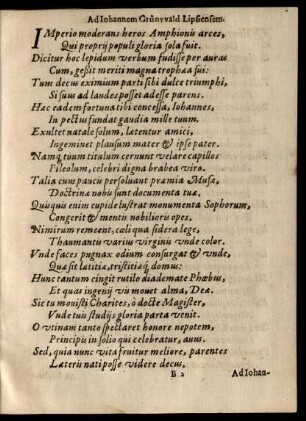 Ad Iohannem Grünvvald Lipsiensem.
IMperio moderans heros Amphionis arces,
Qui proprij populi gloria sola fuit.
Dicitur hoc lepidum verbum fudisse per auras
Cum, gessit meriti magna trophæa sui:
Tum decus eximium parti sibi dulce triumphi,
Si suus ad laudes posset adesse parens.
Hæc eadem fortuna tibi concessa, Iohannes,
In pectus fundat gaudia mille tuum.
Exultet natale solum, lætentur amici,
Ingeminet plausum mater & ipse pater.
Namq́; tuum titulum cernunt velare capillos
Pileolum, celebri digna brabea viro.
Talia cum paucis persoluant præmia Musæ,
Doctrinæ nobis sunt documenta tuæ,
Quiquis enim cupide lustrat monumenta Sophorum,
Congerit & mentis nobilioris opes.
Nimirum remeent, cæli qua sidera lege,
Thaumantis varius virginis vnde color.
Vnde faces pugnax odium consurgat & vnde,
Quæ sit lætitiæ, tristitiæq́; domus:
Hunc tantum cingit rutilo diademate Phœbus,
Et quas ingenij vis mouet alma, Dea.
Sic tu mouisti Charites, ò docte Magister,
Vnde tuis studijs gloria parta venit.
O vtinam tanto spectaret honore nepotem,
Principis in solio qui celebratur, auus.
Sed, quia nunc vita fruitur meliore, parentes
Læteris nati posse videre decus.
B 2 Ad Iohan-